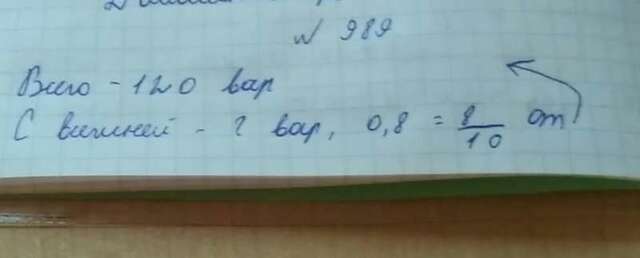 № 989
Всего - 120 вар
С вишней - ? вар, 0,8 = 8/10 от